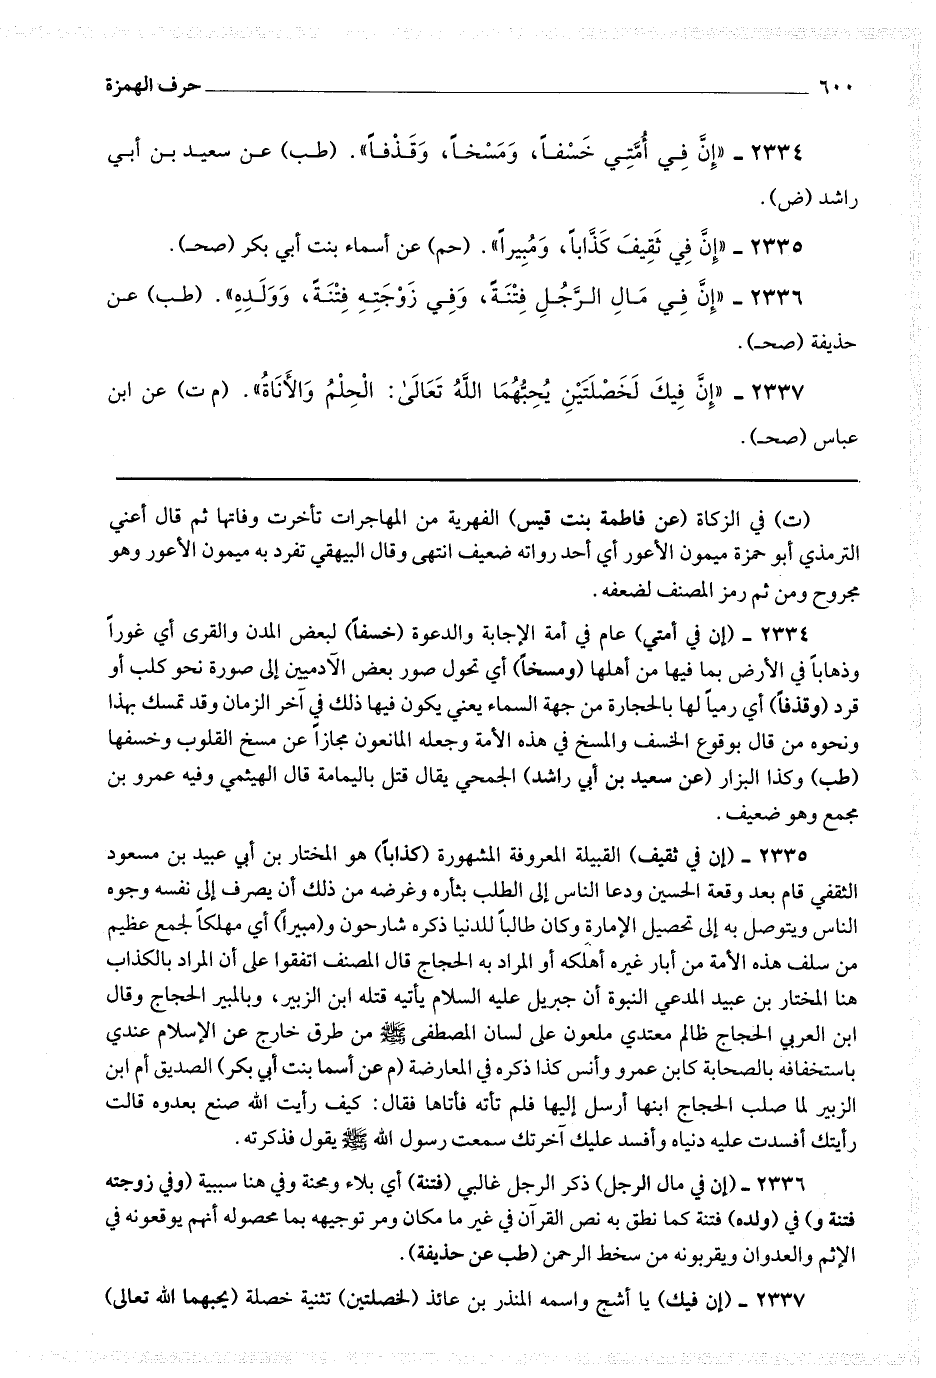 ٦٠٠ حرف الهمزة
٢٣٣٤ ـ «إِنَّ فِي أُمَّتِي خَسْفاً، وَمَسْخاً، وَقَذْفاً». (طب) عن سعيد بن أبي
راشد (ض).
٢٣٣٥ ـ «إِنَّ فِي ثَقِيفَ كَذَّاباً، وَمُبِيراً». (حم) عن أسماء بنت أبي بكر (صحـ).
٢٣٣٦ ـ «إِنَّ فِي مَالِ الرَّجُلِ فِتْنَةً، وَفِي زَوْجَتِهِ فِتْنَةً، وَوَلَدِهِ». (طب) عن
حذيفة (صحـ).
٢٣٣٧ ـ «إِنَّ فِيكَ لَخَصْلَتَيْنِ يُحِبُّهُمَا اللَّهُ تَعَالَىٰ: الْحِلْمُ وَالأَنَاةُ». (م ت) عن ابن
عباس (صحـ).
(ت) في الزكاة (عن فاطمة بنت قيس) الفهرية من المهاجرات تأخرت وفاتها ثم قال أعني
الترمذي أبو حمزة ميمون الأعور أي أحد رواته ضعيف انتهى وقال البيهقي تفرد به ميمون الأعور وهو
مجروح ومن ثم رمز المصنف لضعفه.
٢٣٣٤ ـ (إن في أمتي) عام في أمة الإجابة والدعوة (خسفاً) لبعض المدن والقرى أي غوراً
وذهاباً في الأرض بما فيها من أهلها (ومسخاً) أي تحول صور بعض الآدميين إلى صورة نحو كلب أو
قرد (وقذفاً) أي رمياً لها بالحجارة من جهة السماء يعني يكون فيها ذلك في آخر الزمان وقد تمسك بهذا
ونحوه من قال بوقوع الخسف والمسخ في هذه الأمة وجعله المانعون مجازاً عن مسخ القلوب وخسفها
(طب) وكذا البزار (عن سعيد بن أبي راشد) الجمحي يقال قتل باليمامة قال الهيثمي وفيه عمرو بن
مجمع وهو ضعيف.
٢٣٣٥ ـ (إن في ثقيف) القبيلة المعروفة المشهورة (كذاباً) هو المختار بن أبي عبيد بن مسعود
الثقفي قام بعد وقعة الحسين ودعا الناس إلى الطلب بثأره وغرضه من ذلك أن يصرف إلى نفسه وجوه
الناس ويتوصل به إلى تحصيل الإمارة وكان طالباً للدنيا ذكره شارحون و(مبيراً) أي مهلكاً لجمع عظيم
من سلف هذه الأمة من أبار غيره أهلكه أو المراد به الحجاج قال المصنف اتفقوا على أن المراد بالكذاب
هنا المختار بن عبيد المدعي النبوة أن جبريل عليه السلام يأتيه قتله ابن الزبير، وبالمبير الحجاج وقال
ابن العربي الحجاج ظالم معتدي ملعون على لسان المصطفى ﷺ من طرق خارج عن الإسلام عندي
باستخفافه بالصحابة كابن عمرو وأنس كذا ذكره في المعارضة (م عن أسما بنت أبي بكر) الصديق أم ابن
الزبير لما صلب الحجاج ابنها أرسل إليها فلم تأته فأتاها فقال: كيف رأيت الله صنع بعدوه قالت
رأيتك أفسدت عليه دنياه وأفسد عليك آخرتك سمعت رسول الله ﷺ يقول فذكرته.
٢٣٣٦ ـ (إن في مال الرجل) ذكر الرجل غالبي (فتنة) أي بلاء ومحنة وفي هنا سببية (وفي زوجته
فتنة و) في (ولده) فتنة كما نطق به نص القرآن في غير ما مكان ومر توجيهه بما محصوله أنهم يوقعونه في
الإثم والعدوان ويقربونه من سخط الرحمن (طب عن حذيفة).
٢٣٣٧ ـ (إن فيك) يا أشج واسمه المنذر بن عائذ (لخصلتين) تثنية خصلة (يحبهما الله تعالى)